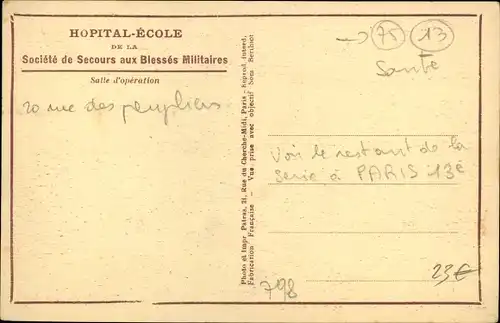 HOPITAL-ÉCOLE
DE LA
Société de Secours aux Blessés Militaires
Salle d'opération
20 rue des peupliers
Photo et Impr Patras, 31, Rue du Cherche-Midi, Paris - Reprod. interd.
Fabrication Française - Vue prise avec objectif Sous Berthiot
→ 75 13
Santé
Voir le restant de la
Serie à PARIS 13è
798
23€